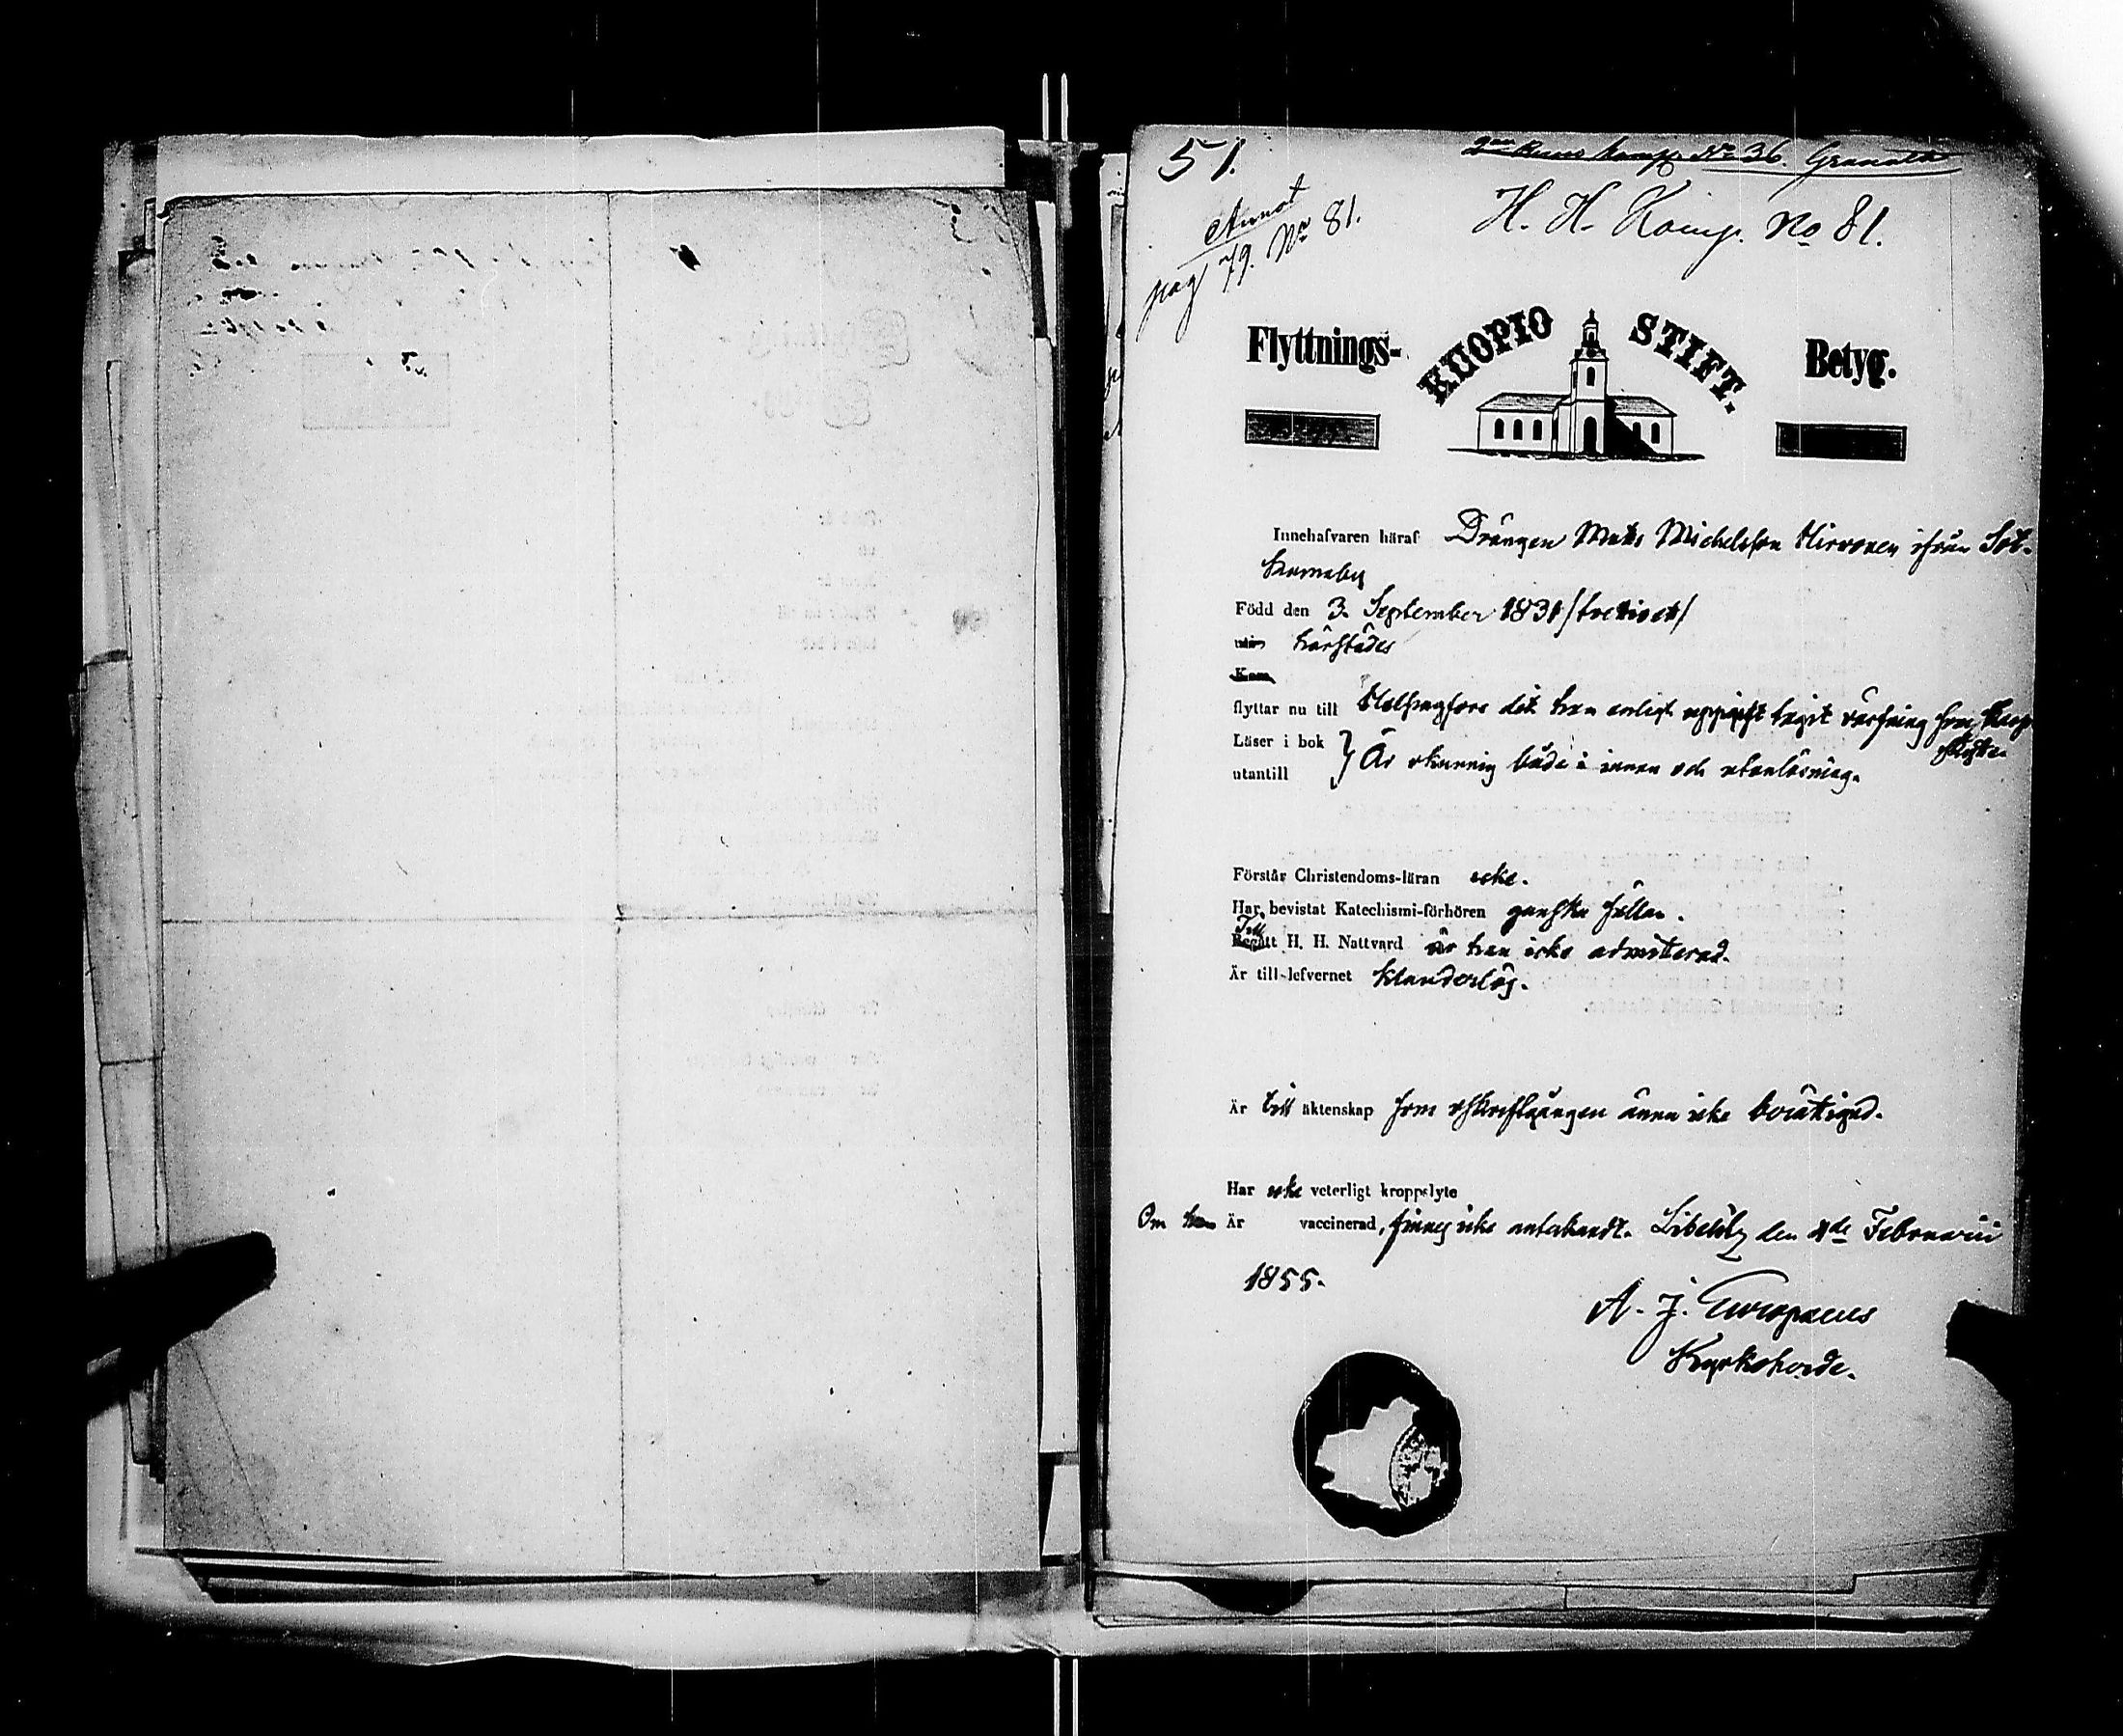 51.
2dra Finns komp. No 36. Granath
Annot
pag 79. No 81.
H. H. Komp. No 81.
Flyttnings- KUOPIO STIFT. Betyg.
Innehafvaren häraf Drängen Mats Michelsson Hirvonen ifrån Sot-
kumaby
Född den 3. September 1831 /trettioet/
härstädes
Kom
flyttar nu till Helsingfors dit han enligt uppgift tagit värfning som Skarp-
skytte.
Läser i bok
utantill } Är okunnig både i innan och utanläsning.
Förstår Christendoms-läran icke.
Har bevistat Katechismi-förhören ganska sällan.
Till
Begått H. H. Nattvard är han icke admitterad.
Är till lefvernet klanderlös.
Är till äktenskap som oskriftgången ännu icke berättigad.
Har icke veterligt kroppslyte
Om han Är vaccinerad, finnes icke antecknadt. Libelitz den 4de Februarii
1855.
A. J. Europaeus
Kyrkoherde.